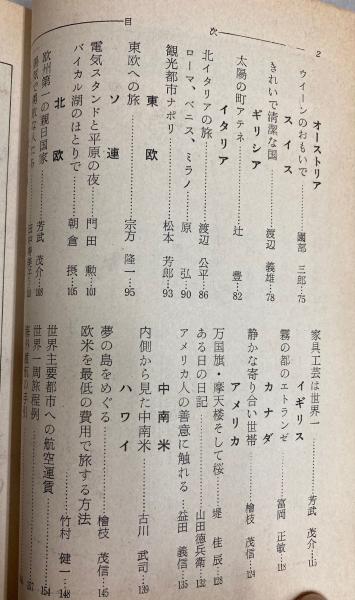 目次
2
オーストリア
ウイーンのおもいで……國部 三郎…75
スイス
きれいで清潔な国……渡辺 義雄…78
ギリシア
太陽の町アテネ……辻 豊…82
イタリア
北イタリアの旅……渡辺 公平…86
ローマ、ベニス、ミラノ……原 弘…90
観光都市ナポリ……松本 芳郎…93
東欧
東欧への旅……宗方 隆一…95
ソ連
電気スタンドと平原の夜……門田 勲…101
バイカル湖のほとりで……朝倉 摂…105
北欧
欧州第一の親日国家……芳武 茂介…108
家具工芸は世界一……芳武 茂介…115
イギリス
霧の都のエトランゼ……富岡 正敏…118
カナダ
静かな寄り合い世帯……檜枝 茂信…124
アメリカ
万国旗・摩天楼そして桜……堤 佳辰…128
ある日の日記……山田徳兵衛…132
アメリカ人の善意に触れる……益田 義信…135
中南米
内側から見た中南米……古川 武司…139
ハワイ
夢の島をめぐる……檜枝 茂信…145
欧米を最低の費用で旅する方法……竹村 健一…148
世界主要都市への航空運賃……154
世界一周旅程例……157